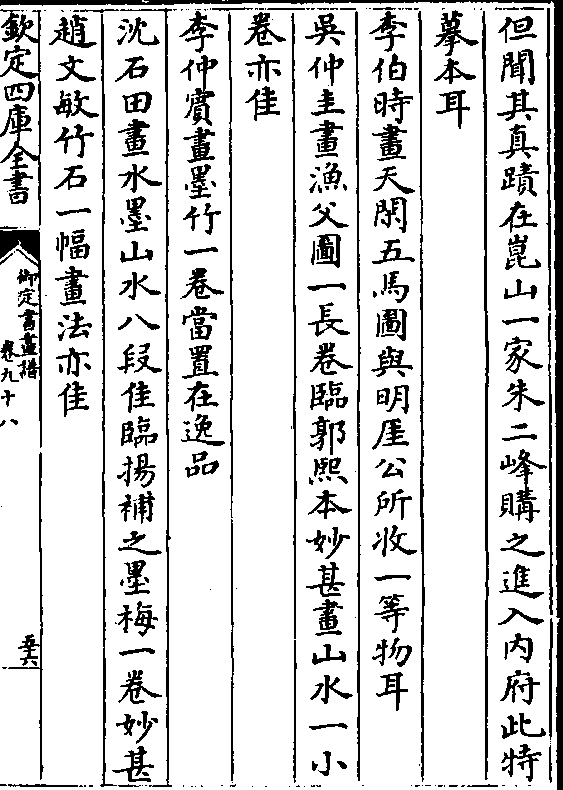 但聞其真蹟在崑山一家朱二峰購之進入内府此特
摹本耳
李伯時畫天閑五馬圖與明厓公所收一等物耳
吳仲圭畫漁父圖一長卷臨郭熙本妙甚畫山水一小
卷亦佳
李仲賓畫墨竹一卷當置在逸品
沈石田畫水墨山水八段佳臨揚補之墨梅一卷妙甚
趙文敏竹石一幅畫法亦佳
欽定四庫全書
御定書畫譜
卷九十八
五六